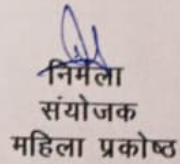 निर्मला
संयोजक
महिला प्रकोष्ठ